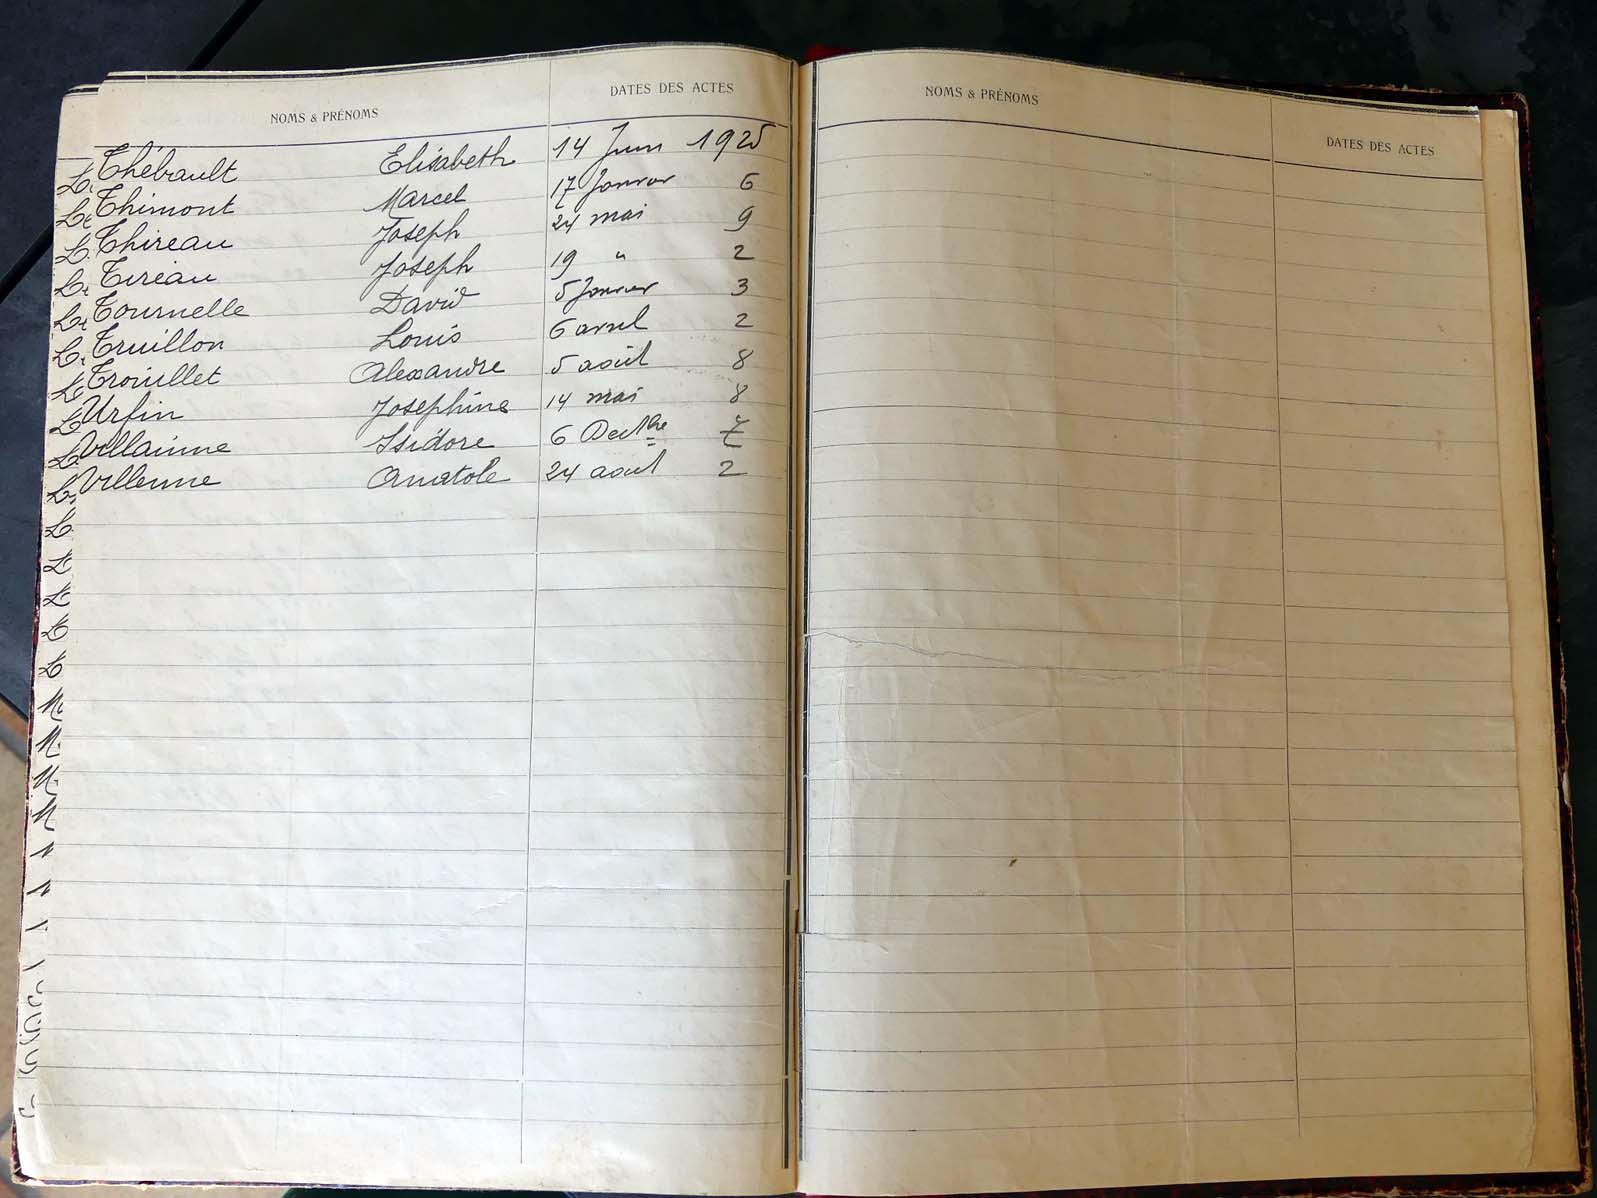 NOMS & PRÉNOMS DATES DES ACTES
Thébault Elisabeth 14 Juin 1925
Thimont Marcel 17 Janvier 6
Thireau Joseph 24 mai 9
Tireau Joseph 19 " 2
Tournelle David 5 Janvier 3
Truillon Louis 6 avril 2
Trouillet Alexandre 5 août 8
Urfin Josephine 14 mai 8
Villainne Isidore 6 Decbre 7
Villenne Anatole 24 aout 2
NOMS & PRÉNOMS DATES DES ACTES